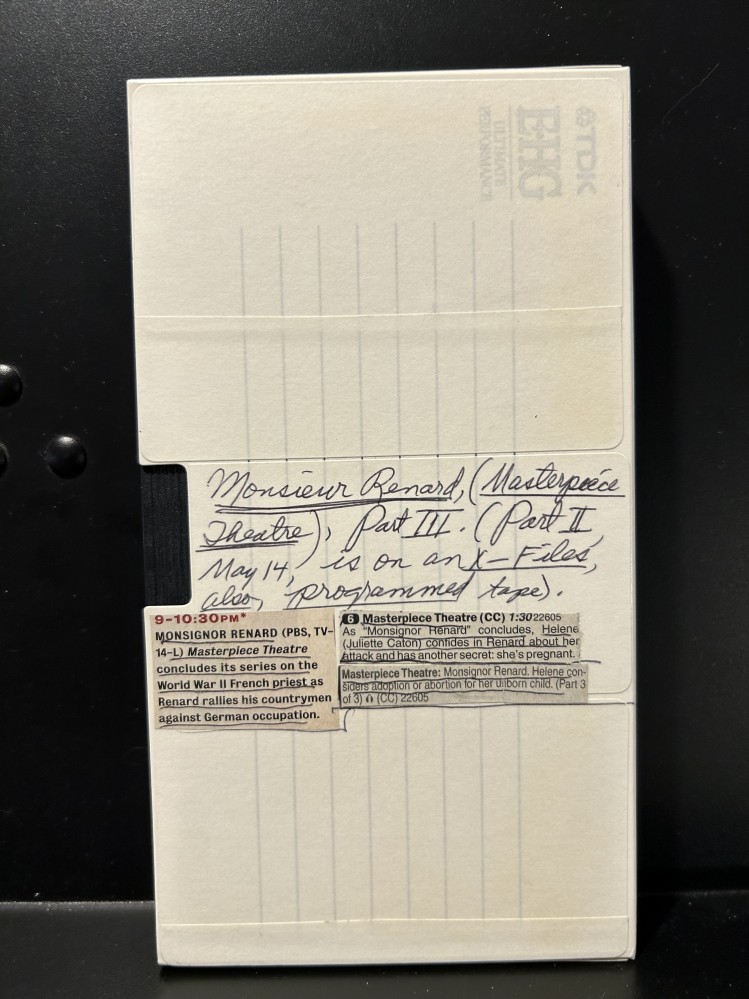 TDK
EHG
ULTIMATE
PERFORMANCE
Monsieur Renard, (Masterpiece
Theatre), Part III. (Part II
May 14, is on an X-Files,
also, programmed tape).
9-10:30PM*
MONSIGNOR RENARD (PBS, TV-
14-L) Masterpiece Theatre
concludes its series on the
World War II French priest as
Renard rallies his countrymen
against German occupation.
6 Masterpiece Theatre (CC) 1:30 22605
As "Monsignor Renard" concludes, Helene
(Juliette Caton) confides in Renard about her
attack and has another secret: she's pregnant.
Masterpiece Theatre: Monsignor Renard. Helene con-
siders adoption or abortion for her unborn child. (Part 3
of 3) (CC) 22605